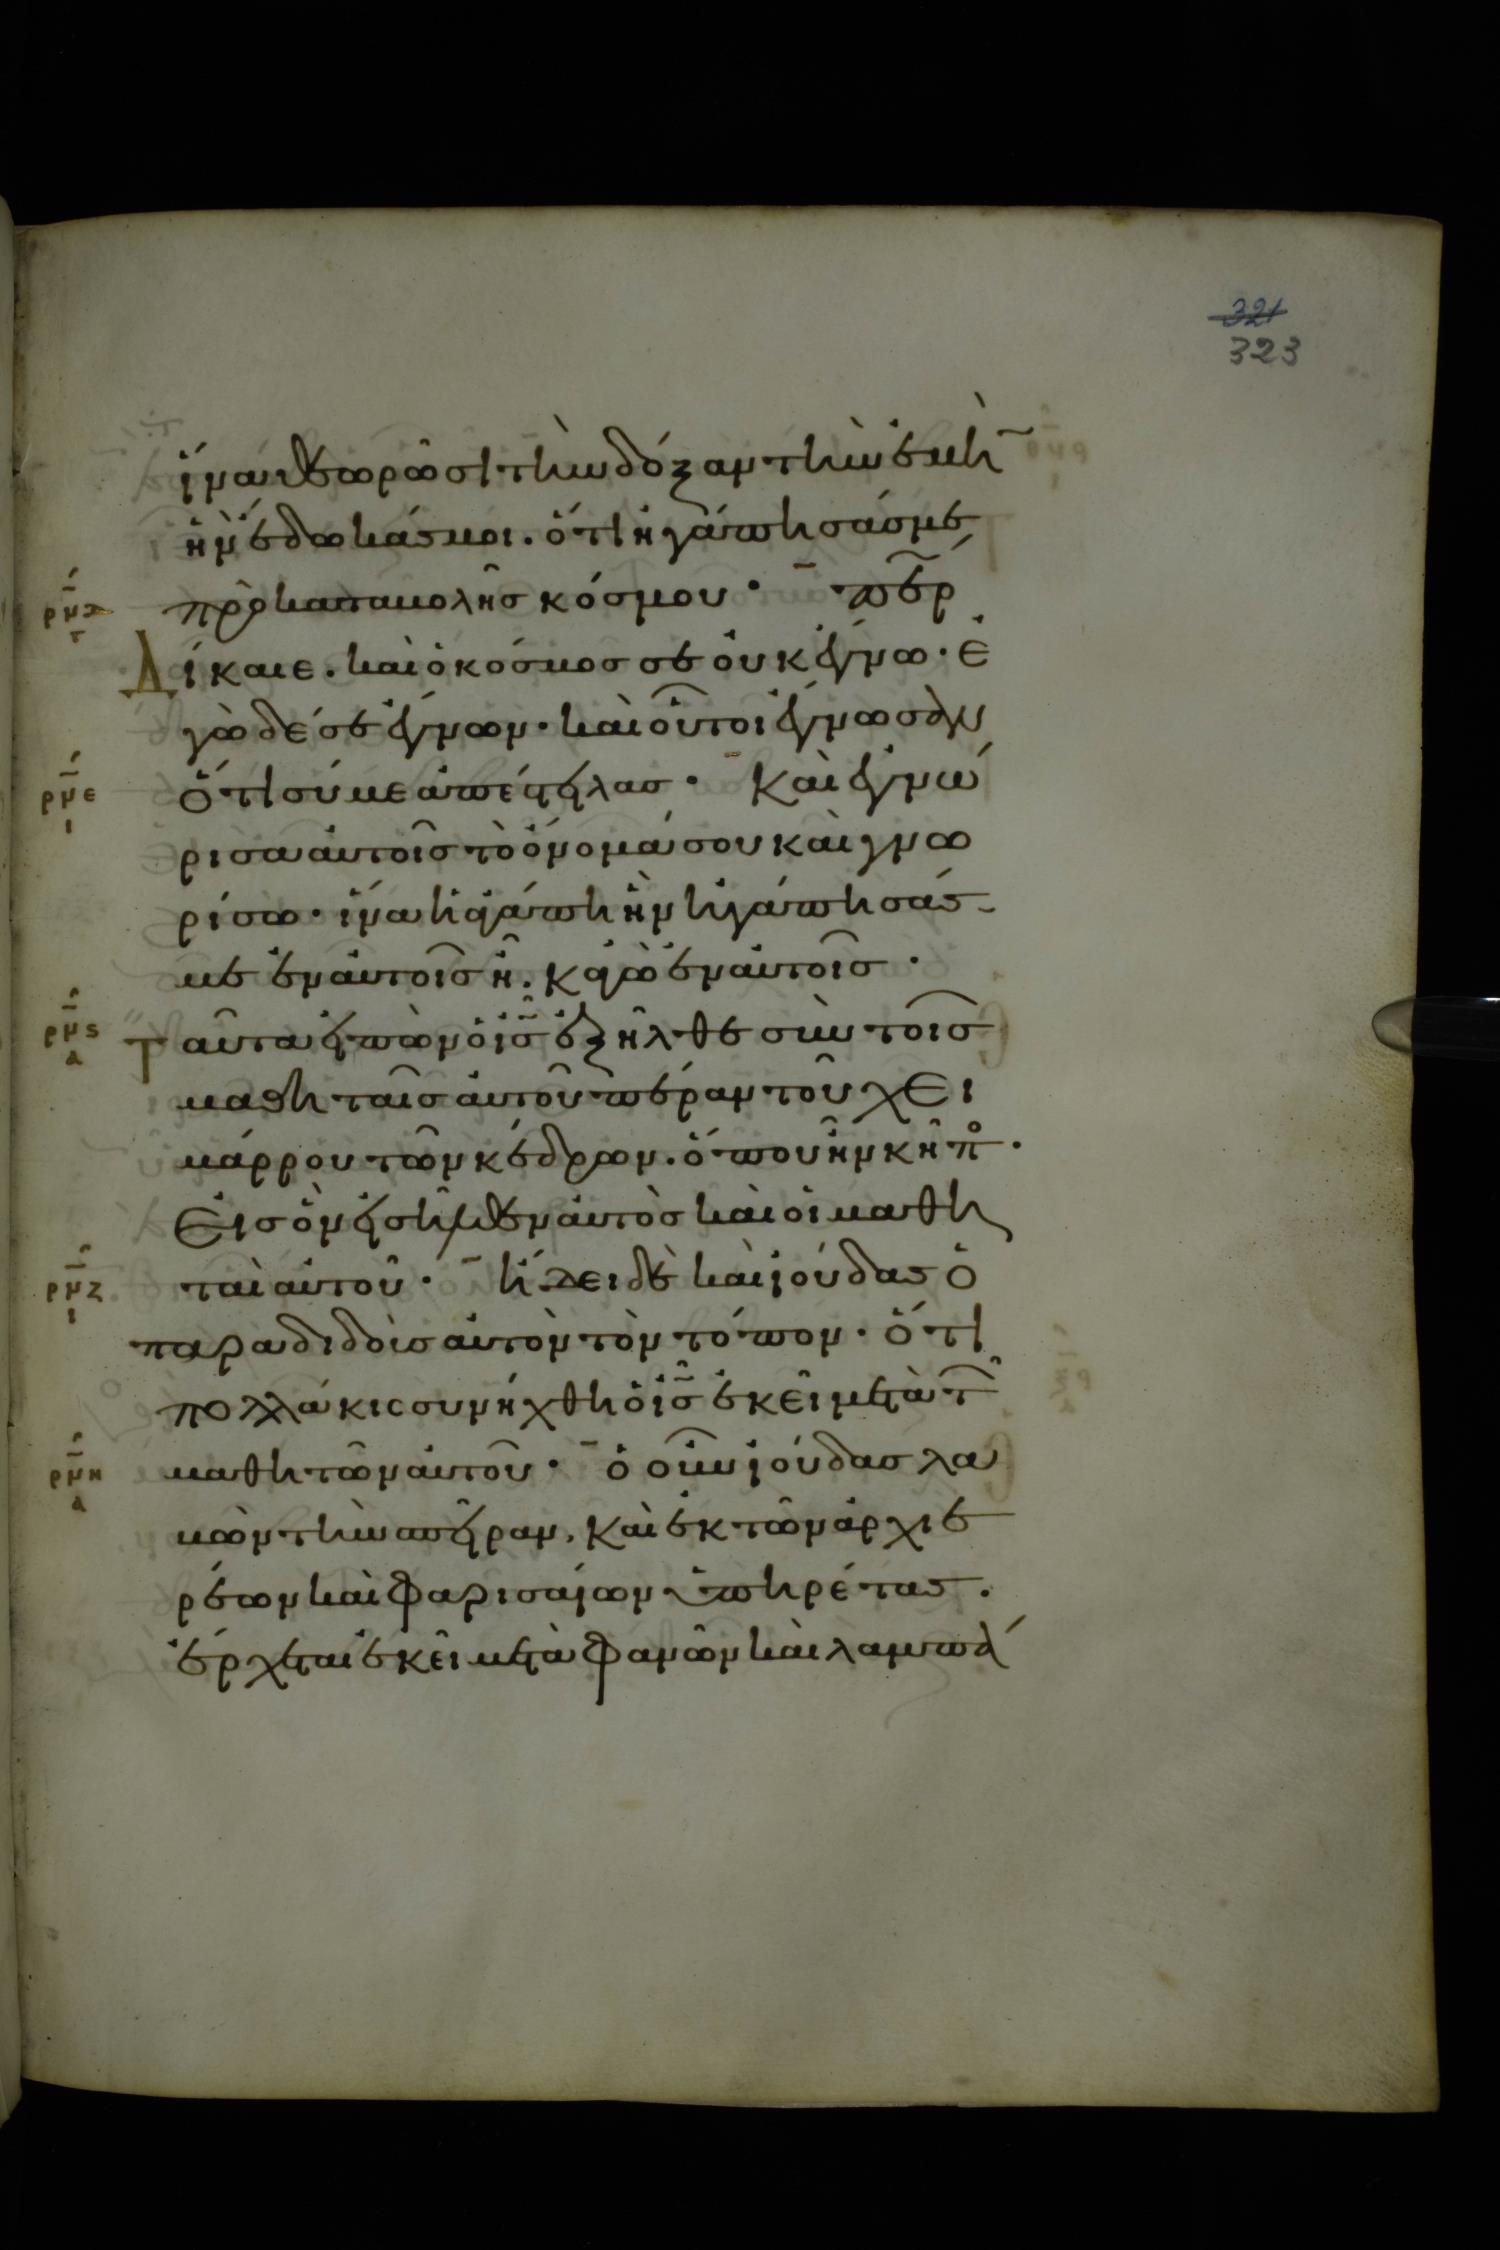 321
323
ἵνα θεωρῶσι τὴν δόξαν τὴν ἐμὴ̅
ἣν ἔδωκάς μοι. ὅτι ἠγάπησάς με
ρμδ γ πρὸ καταβολῆς κόσμου · πε̅ρ
Δίκαιε. καὶ ὁ κόσμος σε οὐκ ἔγνω · ἐ
γὼ δέ σε ἔγνων · καὶ οὗτοι ἔγνωσαν
ρμε ι ὅτι σύ με ἀπέστειλας · Καὶ ἐγνώ
ρισα αὐτοῖς τὸ ὄνομά σου καὶ γνω
ρίσω · ἵνα ἡ ἀγάπη ἣν ἠγάπησάς
με ἐν αὐτοῖς ἦ. κἀγὼ ἐν αὐτοῖς ·
ρμϛ α Ταῦτα εἰπὼν ὁ ἰ̅ς̅ ἐξῆλθε σὺν τοῖς
μαθηταῖς αὐτοῦ πέραν τοῦ χει
μάρρου τῶν κέδρων. ὅπου ἦν κῆπο ·
εἰς ὃν εἰσῆλθεν αὐτὸς καὶ οἱ μαθη
ρμζ ι ταὶ αὐτοῦ · ἤδει δὲ καὶ ἰούδας ὁ
παραδιδοὺς αὐτὸν τὸν τόπον · ὅτι
πολλάκις συνήχθη ὁ ἰ̅ς̅ ἐκεῖ μετὰ τ
ρμη α μαθητῶν αὐτοῦ · ὁ οὖν ἰούδας λα
βὼν τὴν σπεῖραν, καὶ ἐκ τῶν ἀρχιε
ρέων καὶ φαρισαίων ὑπηρέτας.
ἔρχεται ἐκεῖ μετὰ φανῶν καὶ λαμπά